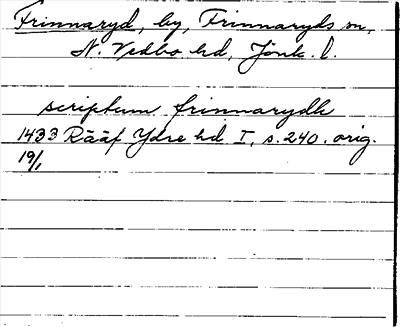 Frinnaryd, by, Frinnaryds sn,
N. Vedbo hd, Jönk. l.
scriptum frinnarydh
1433 Rääf Ydre hd I, s. 240. orig.
19/1